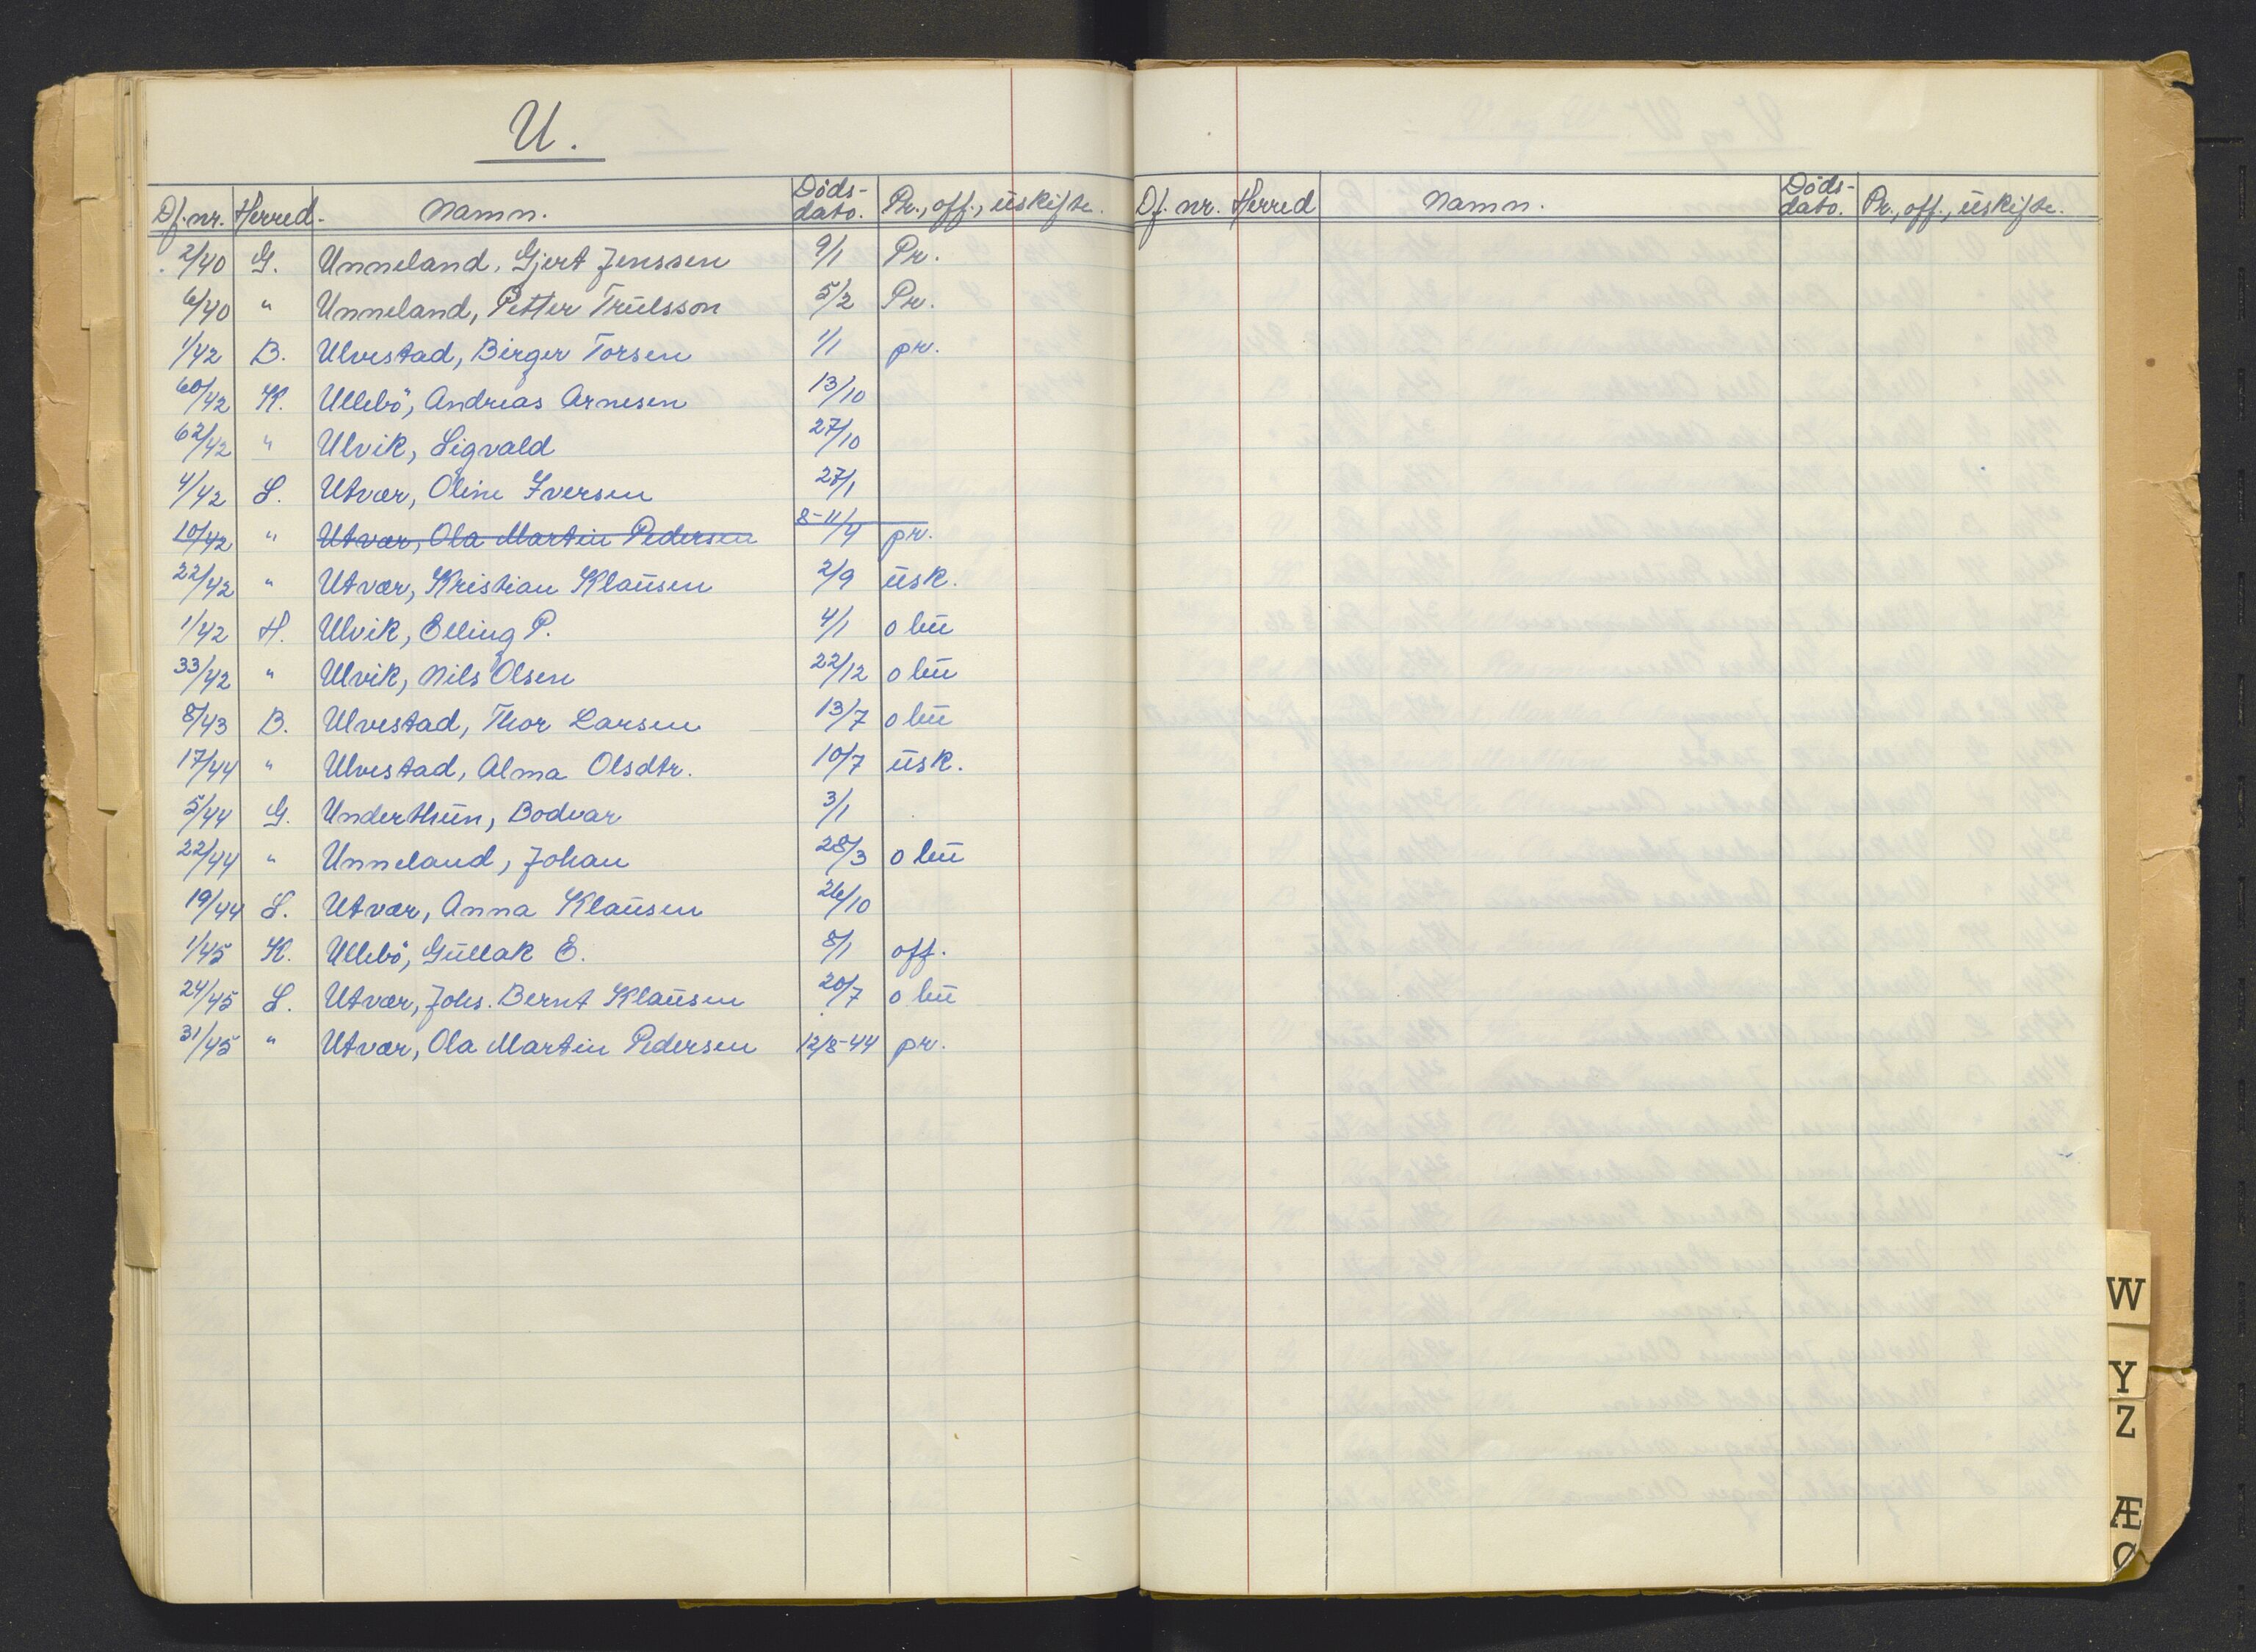 U.
Df. nr. Herred. Namn. Døds-dato. Pr., off., uskifte.
2/40 G. Unneland, Gjert Jenssen 9/1 Pr.
6/40 " Unneland, Petter Trulsson 5/2 Pr.
1/42 B. Ulvestad, Birger Torsen 1/1 pr.
60/42 K. Ullebö, Andreas Arnesen 13/10
62/42 " Ulvik, Sigvald 27/10
4/42 S. Utvær, Oline Iversen 27/1
10/42 " Utvær, Ola Martin Pedersen 8-11/4 pr.
22/42 " Utvær, Kristian Klausen 2/9 usk.
1/42 H. Ulvik, Elling P. 4/1 o bu
33/42 " Ulvik, Nils Olsen 22/12 o bu
8/43 B. Ulvestad, Thor Larsen 13/7 o bu
17/44 " Ulvestad, Alma Olsdtr. 10/7 usk.
5/44 G. Underthun, Bodvar 3/1
22/44 " Unneland, Johan 28/3 o bu
19/44 S. Utvær, Anna Klausen 26/10
1/45 K. Ullebö, Gullak E. 8/1 off.
24/45 S. Utvær, Johs. Bernt Klausen 20/7 o bu
31/45 " Utvær, Ola Martin Pedersen 12/8-44 pr.
Df. nr. Herred Namn. Døds-dato. Pr., off., uskifte.
W
Y
Z
Æ
Ø